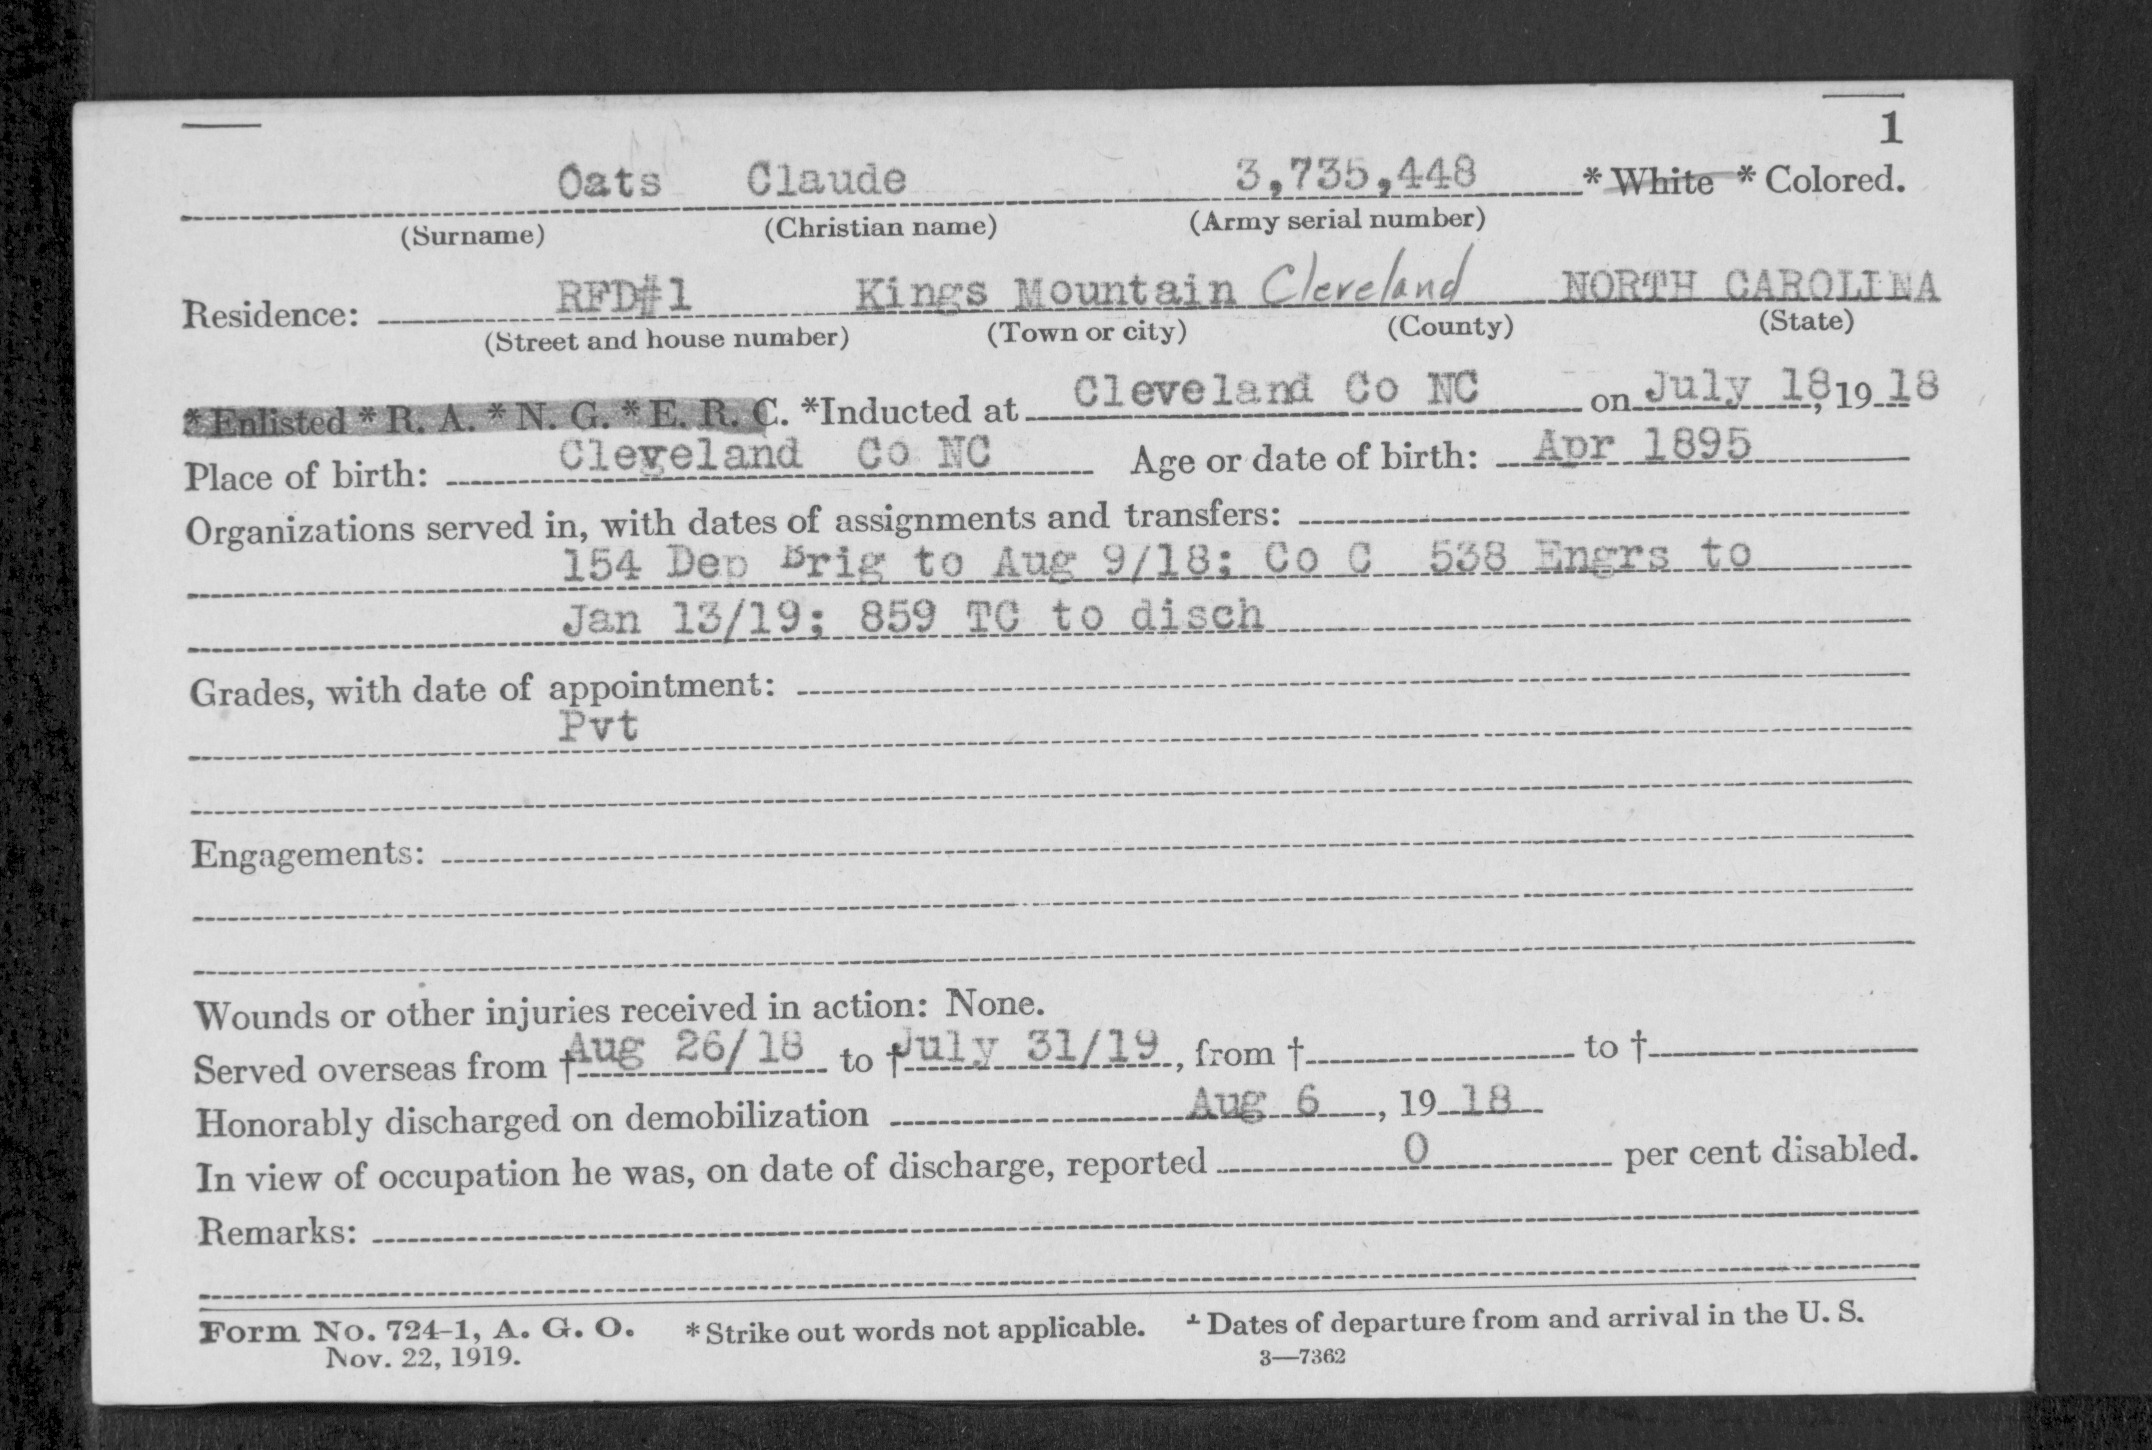 1
Oats Claude 3,735,448 * White * Colored.
(Surname) (Christian name) (Army serial number)
Residence: RFD#1 Kings Mountain Cleveland NORTH CAROLINA
(Street and house number) (Town or city) (County) (State)
* Enlisted * R. A. * N. G. * E. R. C. *Inducted at Cleveland Co NC on July 18, 1918
Place of birth: Cleveland Co NC Age or date of birth: Apr 1895
Organizations served in, with dates of assignments and transfers:
154 Dep Brig to Aug 9/18; Co C 538 Engrs to
Jan 13/19; 859 TC to disch
Grades, with date of appointment:
Pvt
Engagements:
Wounds or other injuries received in action: None.
Served overseas from † Aug 26/18 to † July 31/19, from † to †
Honorably discharged on demobilization Aug 6, 1918
In view of occupation he was, on date of discharge, reported 0 per cent disabled.
Remarks:
Form No. 724-1, A. G. O. * Strike out words not applicable. † Dates of departure from and arrival in the U. S.
Nov. 22, 1919. 3—7362